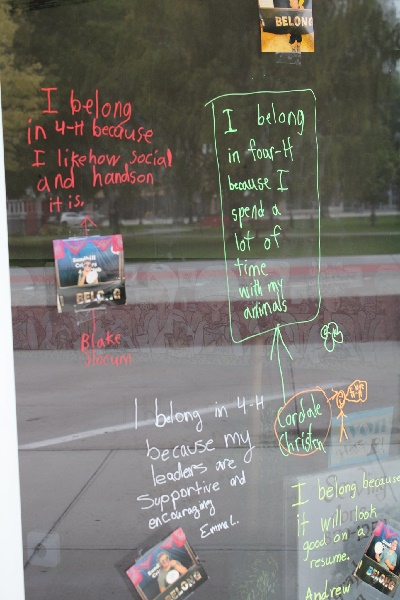 BELONG
I belong
in 4-H because
I like how social
and handson
it is.
BELONG
Blake
Slocum
I belong
in four-H
because I
spend a
lot of
time
with my
animals
I belong in 4-H
because my
leaders are
supportive and
encouraging
Emma L.
BELONG
I belong because
it will look
good on a
resume.
Andrew
BELONG